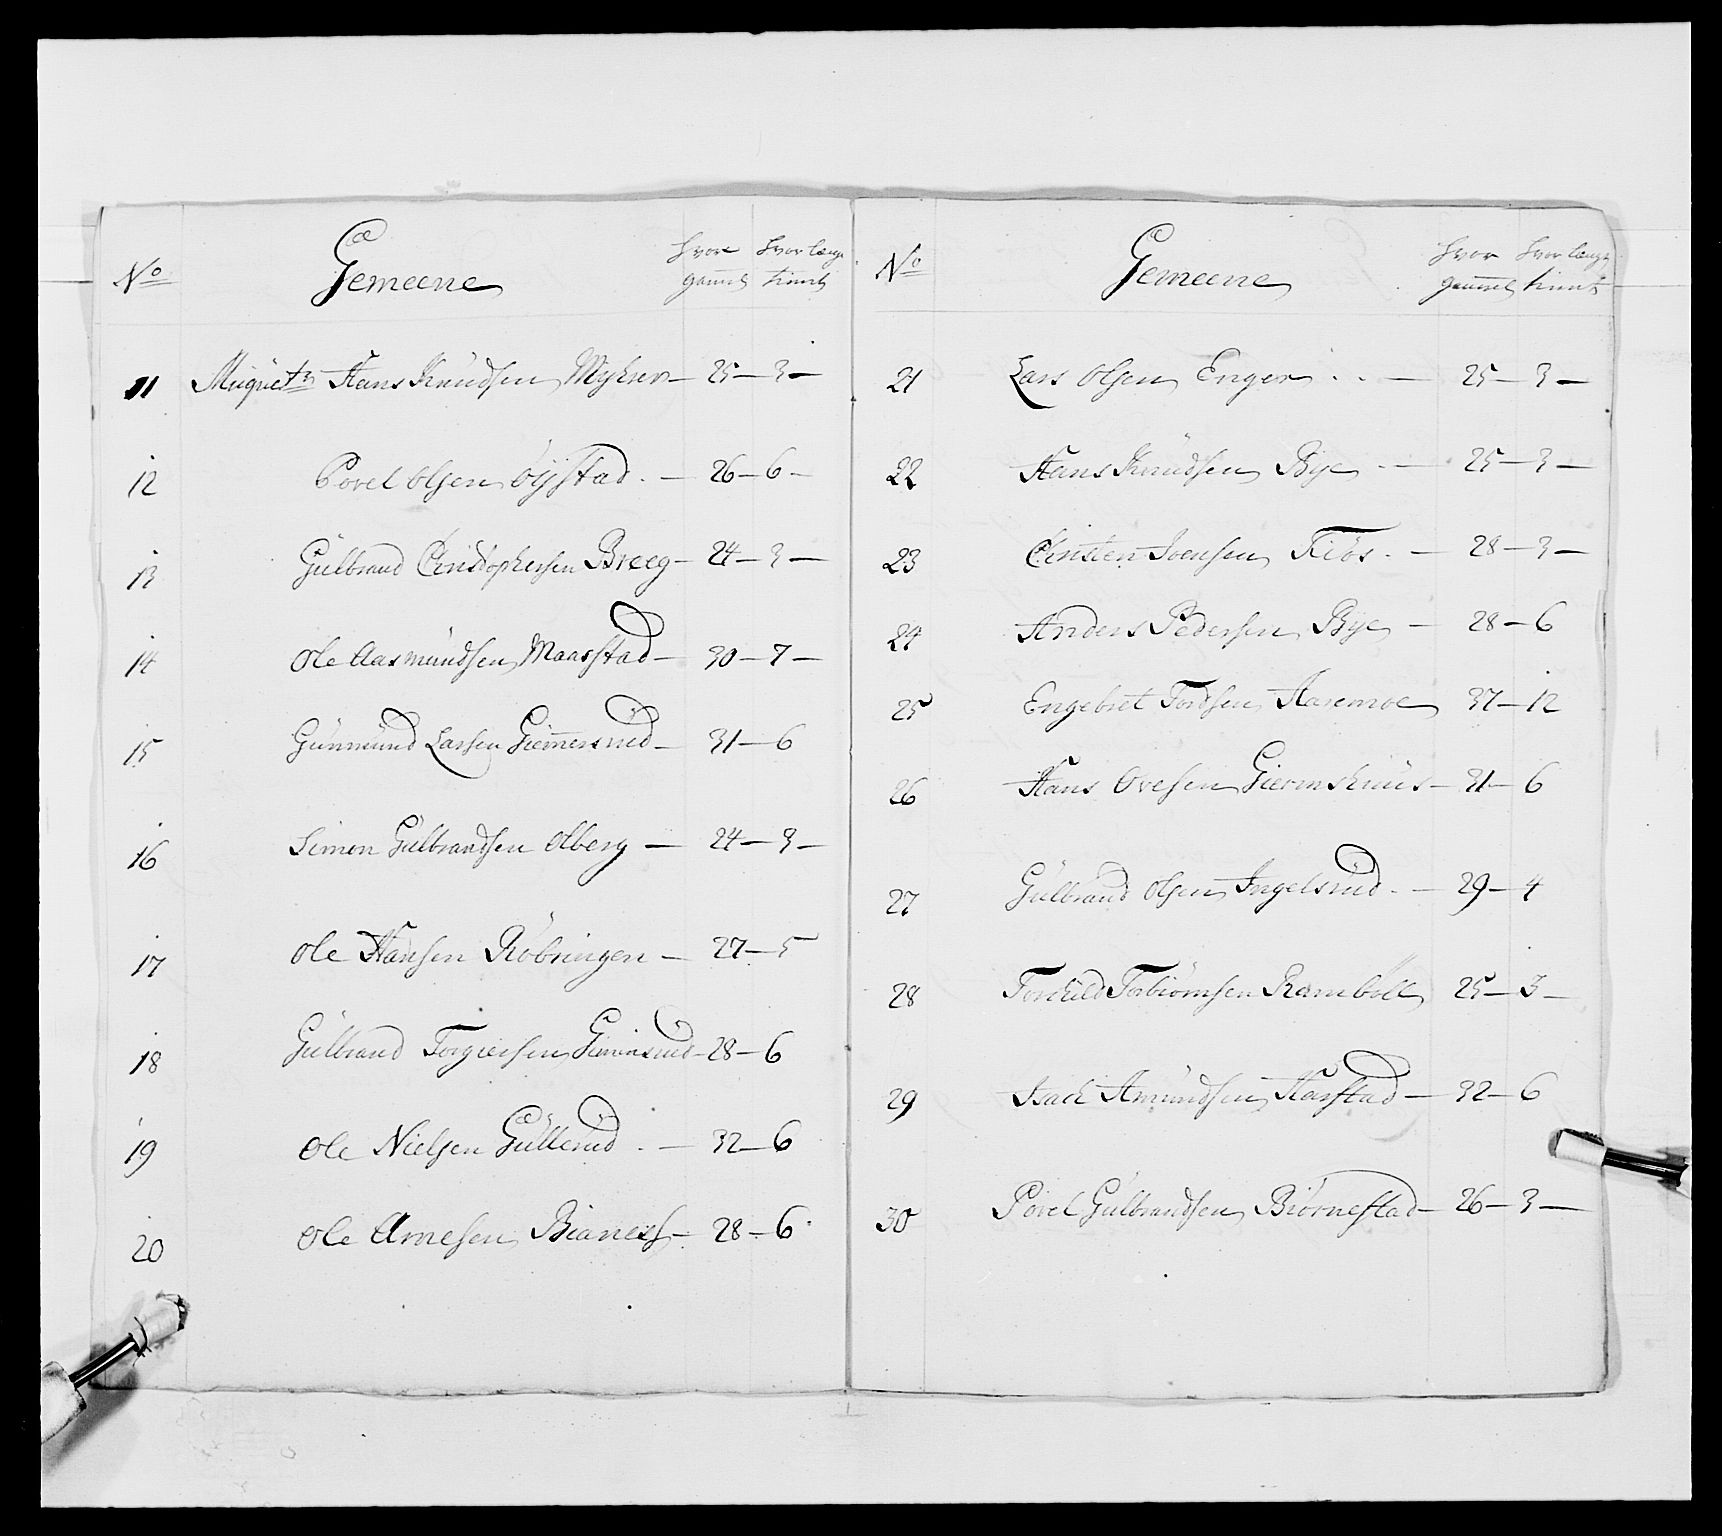 No Gemeene hvor gammel hvor længe tient
11 Muqüet:r Hans Knüdsen Myhren — 25 — 3 —
12 Povel Olsen Öÿstad. — 26 — 6 —
13 Gülbrand Christophersen Breeg — 24 — 3 —
14 Ole Aasmündsen Maasstad — 30 — 7 —
15 Günmünd Larsen Giemersrüd — 31 — 6
16 Simen Gülbrandsen Olberg — 24 — 3 —
17 Ole Hansen Röbringen — 27 — 5
18 Gülbrand Torgiersen Giminsrud — 28 — 6
19 Ole Nielsen Güllerüd. — 32 — 6
20 Ole Arnesen — 28 — 6
No Gemeene hvor gammel hvor længe tient
21 Lars Olsen Enger . . — 25 — 3 —
22 Hans Knüdsen Bye — 25 — 3 —
23 Christen Iversen Fiös. — 28 — 3 —
24 Anders Pedersen Bÿe — 28 — 6
25 Engebret Tordsen Haremoe 37 — 12
26 Hans Ovesen Giermshuus — 31 — 6
27 Gülbrand Olsen Ingelsrud. — 29 — 4
28 Torchild Torbiörnsen Ramböll 25 — 3 —
29 Isach Amündsen Harstad — 32 — 6
30 Povel Gülbrandsen Biörnestad — 26 — 3 —